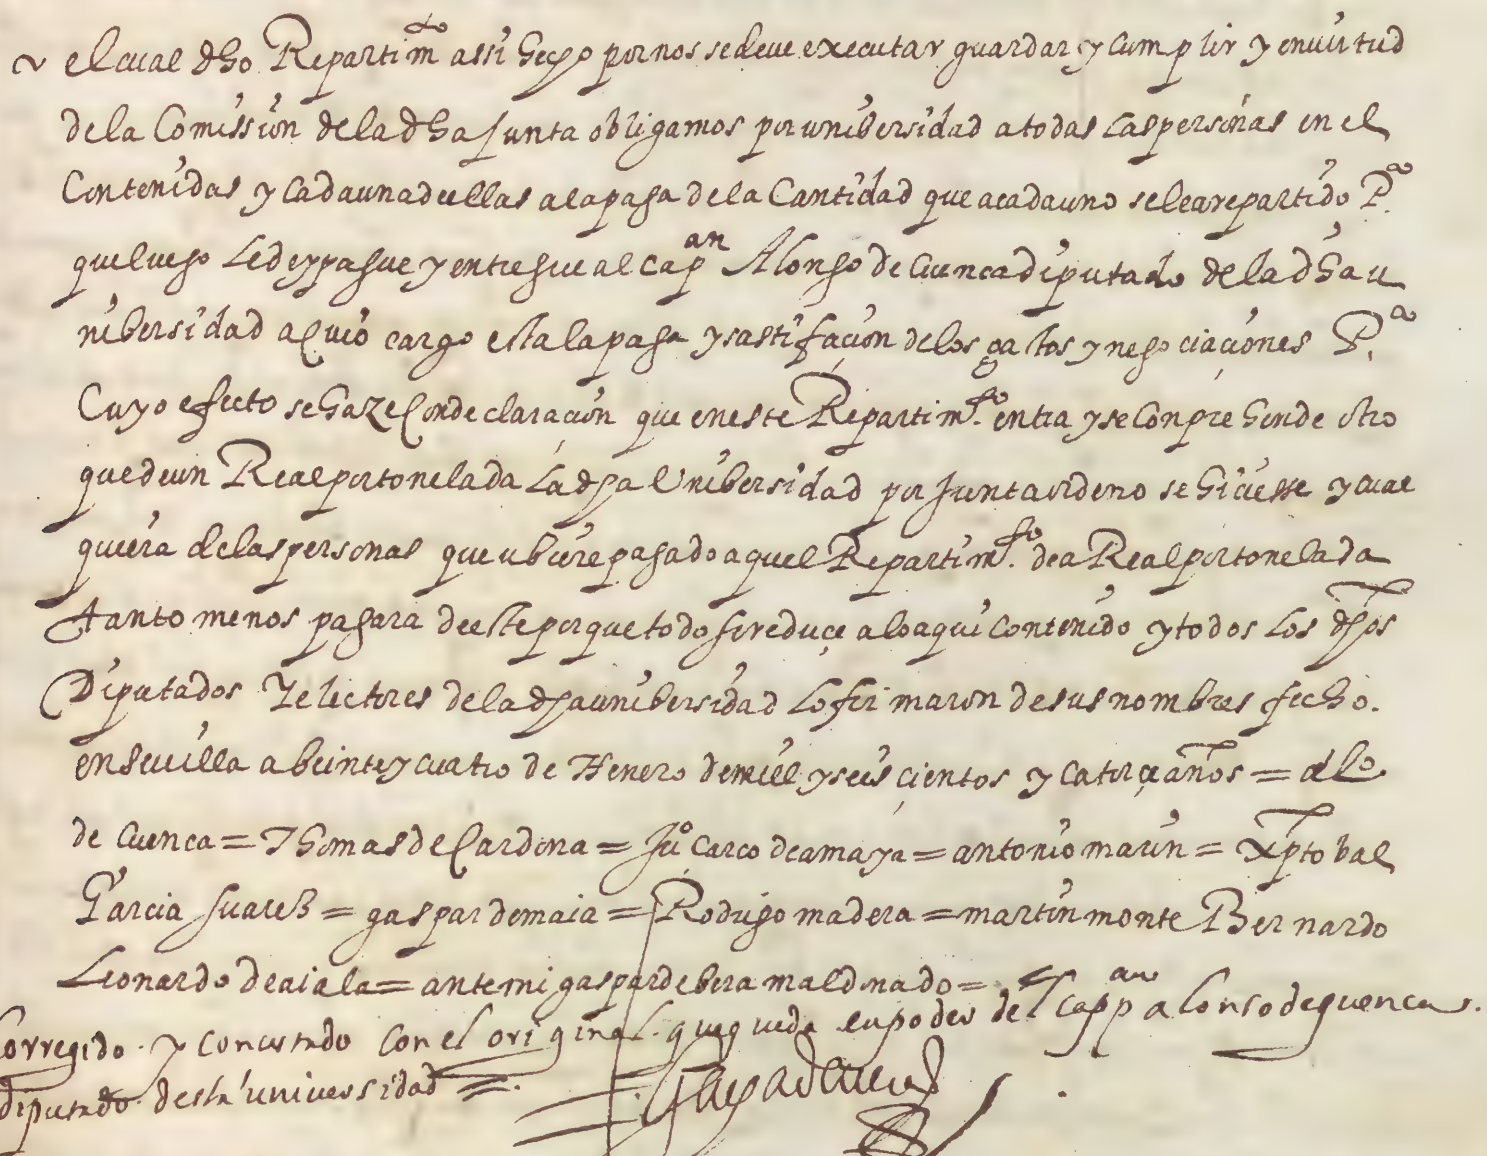 ~ el cual dho Repartimto assi hecho por nos se deve executar guardar y cumplir y en virtud
de la Comission de la dha Junta obligamos por unibersidad a todas las personas en el
Contenidas y cada una de ellas a la paga de la Cantidad que a cada uno se le a repartido Pa.
que luego le de y pague y entregue al capan Alonso de Cuenca diputado de la dha u
nibersidad a Cuio cargo esta la paga y sastifacion de los gastos y negociaciones Pa.
Cuyo efecto se haze Con declaracion que en este Repartimto. entra y se Conprehende otro
que de un Real por tonelada La dha Unibersidad por Junta ordeno se hiciesse y cual
quiera de las personas que ubiere pagado aquel Repartimto. de a Real por tonelada
tanto menos pagara de este porque todo se reduce a lo aqui contenido y todos los dhos
Diputados Y electores de la dha unibersidad lo firmaron de sus nombres fecho.
en Sevilla a beinte y cuatro de Henero de mill y seis cientos y catorce años = alo
de Cuenca = Thomas de Cardona = Juo Carço de amaya = antonio marin = Xptobal
Garcia Suarez = gaspar de maia = Rodrigo madera = martin monte Bernardo
Leonardo de aiala = ante mi gaspar de bera maldonado = el cappan alonso de quenca.
Corregido y concertado con el original que queda en poder del
diputado desta universidad =.